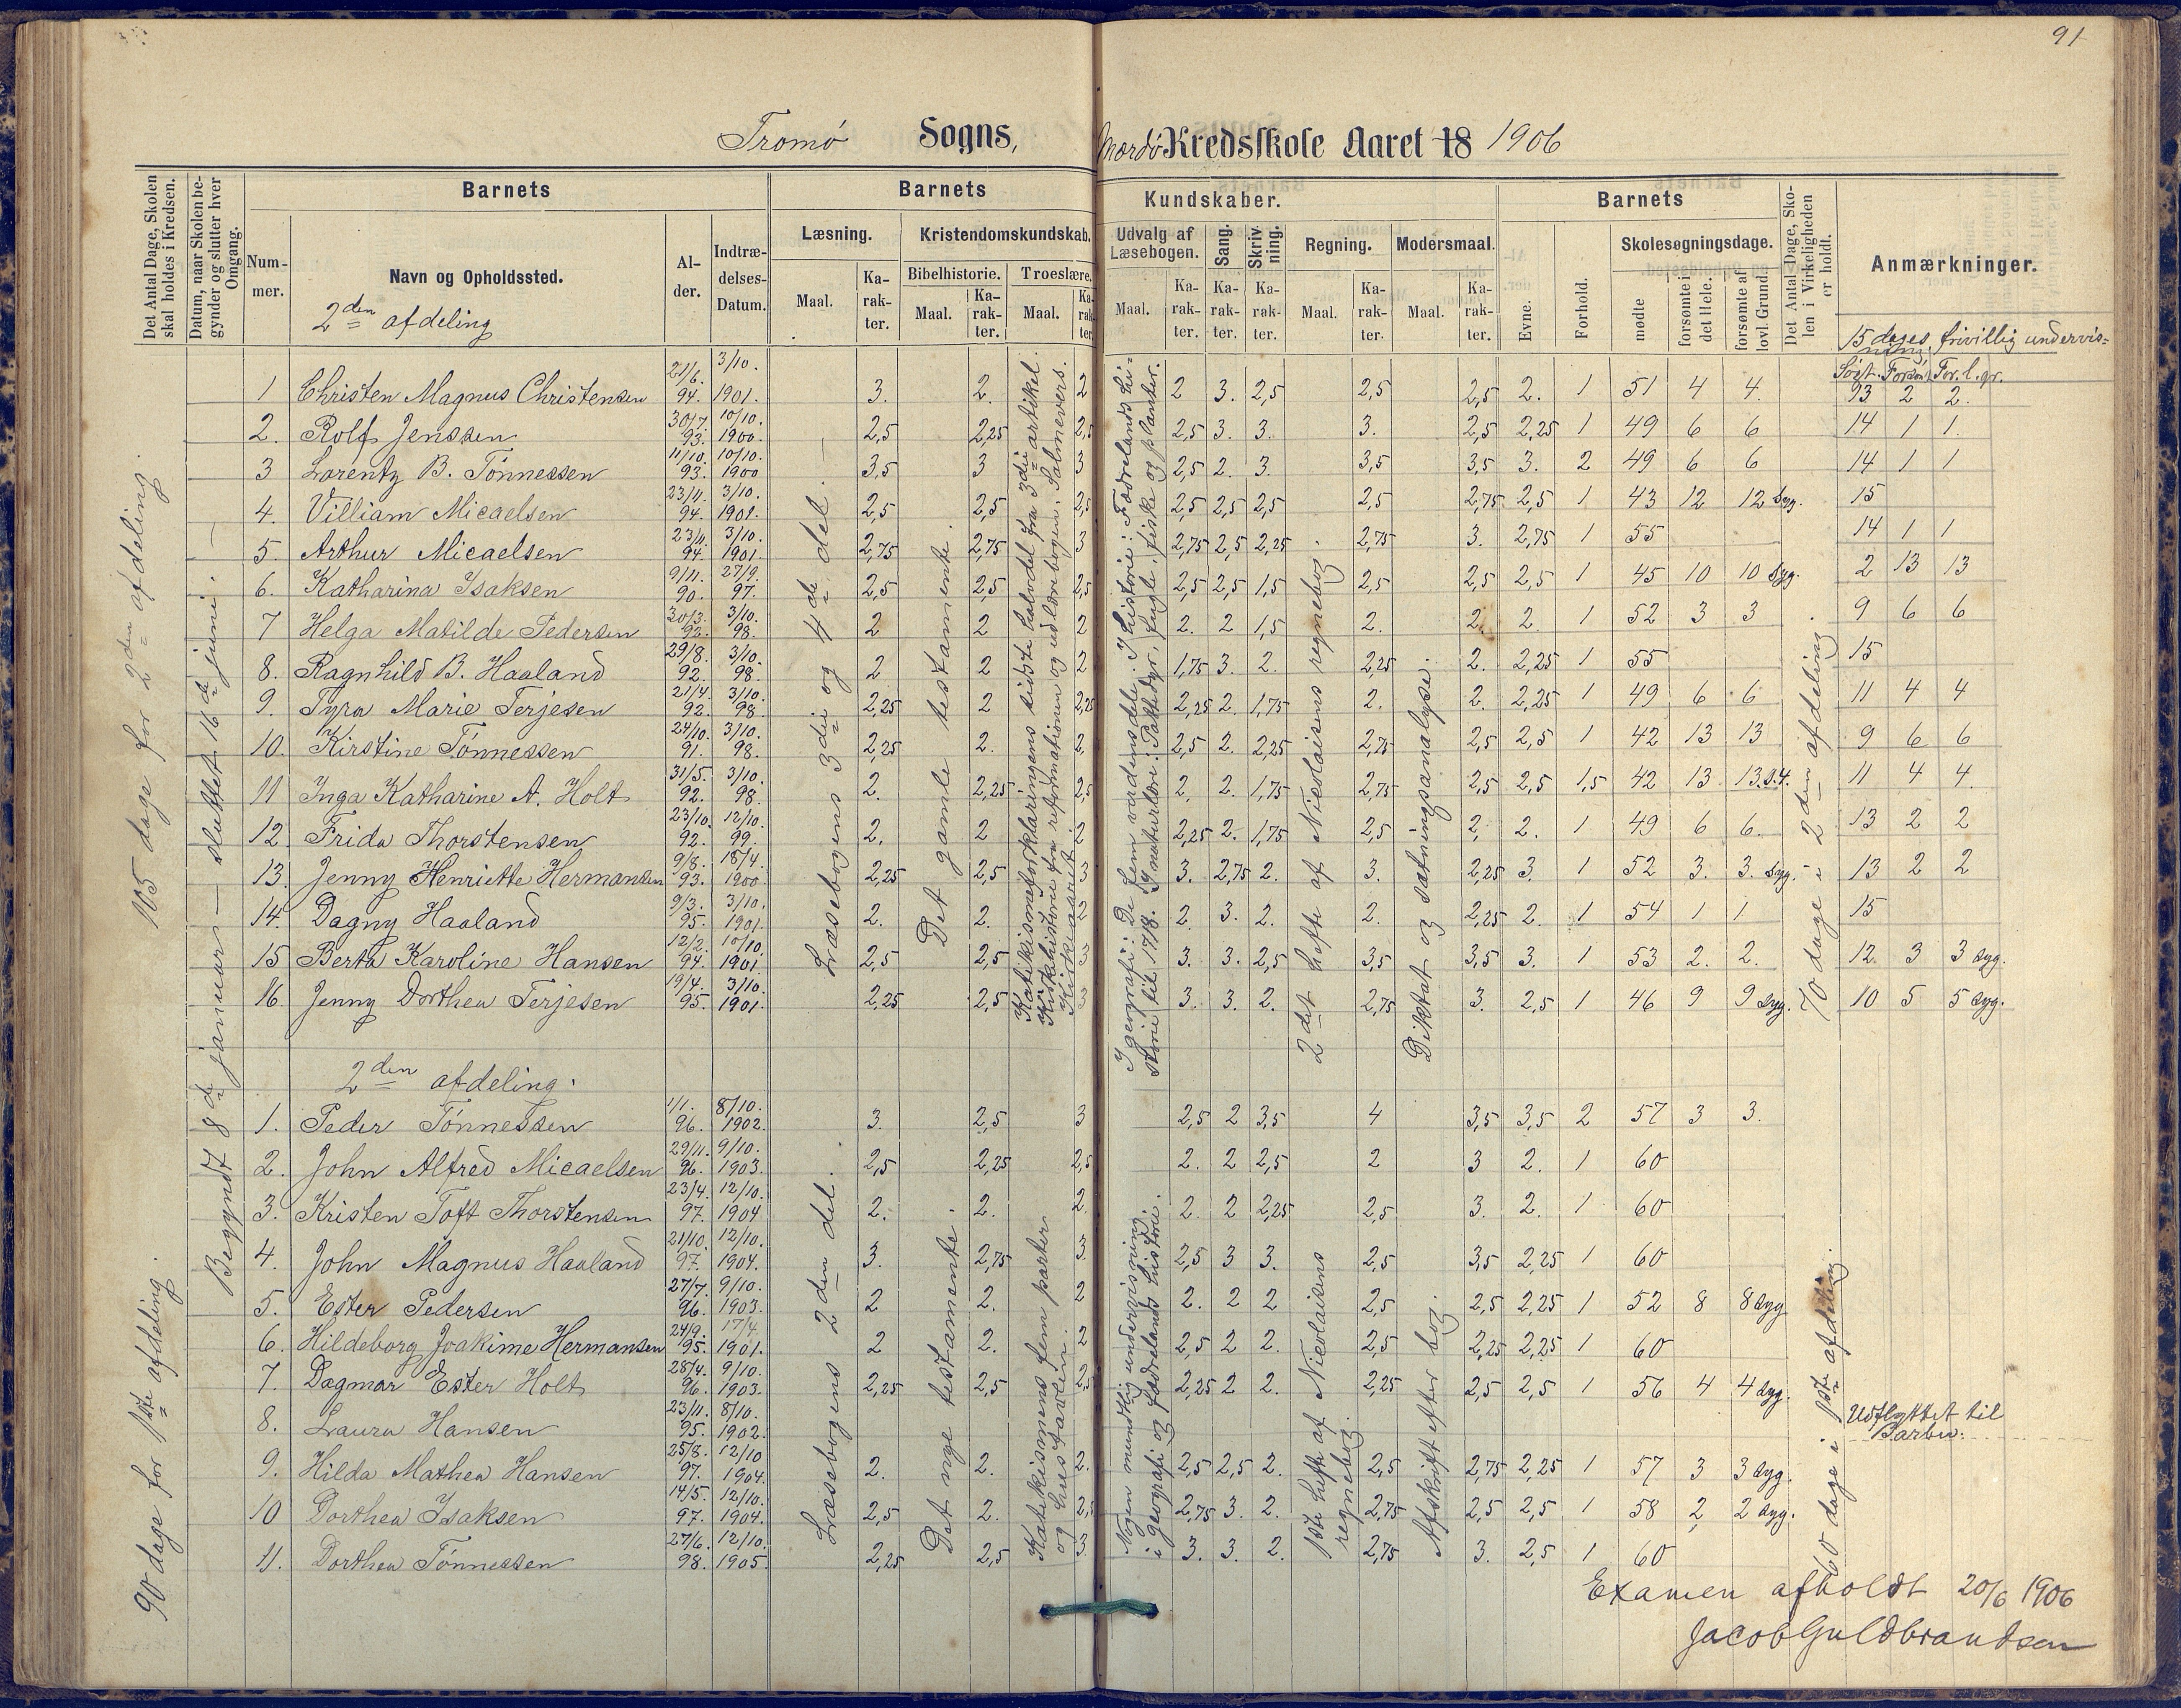 91
Tromø Sogns, Mærdø Kredsskole Aaret 18 1906
Det Antal Dage, Skolen skal holdes i Kredsen.
Datum, naar Skolen begynder og slutter hver Omgang.
Barnets
Nummer.
Navn og Opholdssted.
Alder.
Indtrædelses-Datum.
Barnets Kundskaber.
Læsning.
Maal.
Karakter.
Kristendomskundskab.
Bibelhistorie.
Maal.
Karakter.
Troeslære.
Maal.
Karakter.
Udvalg af Læsebogen.
Maal.
Karakter.
Sang.
Karakter.
Skrivning.
Karakter.
Regning.
Maal.
Karakter.
Modersmaal.
Maal.
Karakter.
Barnets
Evne.
Forhold.
Skolesøgningsdage.
mødte
forsømte i det Hele.
forsømte af lovl. Grund.
Det Antal Dage, Skolen i Virkeligheden er holdt.
Anmærkninger.
2den afdeling
15 dages frivillig undervisning
Søgt. Forsøm. For. l. gr.
105 dage for 2den afdeling.
90 dage for 1ste afdeling.
Begyndt 8de januar — sluttet 16de juni.
Læsebogens 3die og 4de del.
Det gamle testamente.
Katekismeforklaringens sidste halvdel fra 3die artikel.
Kirkehistorie fra reformationen og ud lærebogen. Salmevers.
Kirkeaaret
I geografi: De fem verdensdele. I historie: Fædrelandshistorie til 1718. I naturlære: Pattedyr, fugle, fiske og planter.
2det hefte af Nicolaisens regnebog.
Diktat og sætningsanalyse.
70 dage i 2den afdeling.
1 Christen Magnus Christensen 21/6. 94. 3/10. 1901. 3. 2. 2 2 3. 2,5 2,5 2,5 2. 1 51 4 4. 13 2 2.
2. Rolf Jenssen 30/7. 93. 10/10. 1900. 2,5 2,25 2,5 2,5 3. 3. 3. 2,5 2,25 1 49 6 6 14 1 1.
3 Lorentz B. Tønnessen 11/10. 93. 10/10. 1900 3,5 3 3 2,5 2. 3. 3,5 3,5 3. 2 49 6 6 14 1 1
4. Villiam Micaelsen 23/11. 94. 3/10. 1901. 2,5 2,5 2,5 2,5 2,5 2,5 2,5 2,75 2,5 1 43 12 12 syg. 15
5. Arthur Micaelsen 23/11. 94. 3/10. 1901. 2,75 2,75 3 2,75 2,5 2,25 2,75 3. 2,75 1 55 14 1 1
6. Katharina Isaksen 9/11. 90. 27/9. 97. 2,5 2,5 2,5 2,5 2,5 1,5 2,5 2,5 2,5 1 45 10 10 syg. 2 13 13
7 Helga Matilde Pedersen 30/3. 92. 3/10. 98. 2 2 2 2. 2 1,5 2. 2. 2. 1 52 3 3 9 6 6
8. Ragnhild B. Haaland 29/8. 92. 3/10. 98. 2 2 2 1,75 3. 2. 2,25 2. 2,25 1 55 15
9. Tyra Marie Terjesen 21/4. 92. 3/10. 98. 2,25 2 2,25 2,25 2. 1,75 2. 2. 2,25 1 49 6 6 11 4 4
10. Kirstine Tønnessen 24/10. 91. 3/10. 98. 2,25 2. 2, 2,5 2. 2,25 2,75 2,5 2,5 1 42 13 13 9 6 6
11 Inga Katharine A. Holt 31/5. 92. 3/10. 98. 2. 2,25 2,5 2. 2. 1,75 2,75 2,5 2,5 1,5 42 13 13 11 4 4.
12. Frida Thorstensen 23/10. 92. 12/10. 99. 2. 2 2 2,25 2. 1,75 2,5 2, 2. 1 49 6 6. 13 2 2
13. Jenny Henriette Hermansen 9/8. 93. 18/4. 1900 2,25 2,5 3 3. 2,75 2. 3. 2,25 3. 1 52 3. 3. syg. 13 2 2
14. Dagny Haaland 9/3. 95. 3/10. 1901. 2. 2. 2 2. 3. 2. 2. 2,25 2. 1 54 1 1 15
15 Berta Karoline Hansen 12/2. 94. 10/10. 1901. 2,5 2,5 3 3. 3. 2,5 3,5 3,5 3. 1 53 2. 2. 12. 3 3 syg.
16. Jenny Dorthea Terjesen 19/4. 95. 3/10. 1901. 2,25 2,5 3 3. 3. 2. 2,75 3. 2,5 1 46 9 9 syg. 10 5 5 syg.
2den afdeling.
Læsebogens 2den del.
Det nye testamente.
Katekismens fem parter og hustavlen.
Nogen mundtlig undervisning i geografi og fædrelandshistorie.
1ste hefte af Nicolaisens regnebog.
Afskrift efter bog.
60 dage i 1ste afdeling.
1. Peder Tønnessen 1/1. 96. 8/10. 1902. 3. 2,5 3 2,5 2 3,5 4 3,5 3,5 2 57 3 3.
2. John Alfred Micaelsen 29/11. 96. 9/10. 1903. 2,5 2,25 2,5 2. 2 2,5 2 3 2. 1 60
3. Kristen Toft Thorstensen 23/4. 97. 12/10. 1904 2. 2. 2. 2. 2 2,25 2,5 3. 2. 1 60
4. John Magnus Haaland 21/10. 97. 12/10. 1904. 3. 2,75 3 2,5 3 3. 2,5 3,5 2,25 1 60
5. Ester Pedersen 27/7. 96. 9/10. 1903. 2 2. 2 2. 2 2 2,5 2,5 2,25 1 52 8 8 syg
6. Hildeborg Joakime Hermansen 24/9. 95. 17/4. 1901. 2 2. 2,5 2 2. 2,5 2,25 2,25 1 60
7. Dagmar Ester Holt 28/4. 96. 9/10. 1903. 2,25 2,5 2,5 2,25 2 2. 2,25 2,5 2,5 1 56 4 4 syg.
8. Laura Hansen 23/11. 95. 8/10. 1902. Udflyttet til Barbu.
9. Hilda Mathea Hansen 25/8. 97. 12/10 1904. 2. 2. 2. 2,5 2,5 2. 2,5 2,75 2,25 1 57 3 3 syg.
10 Dorthea Isaksen 14/5. 97. 12/10. 1904. 2,5 2. 2,5 2,75 3. 2. 2,75 2,5 2,5 1 58 2 2 syg.
11. Dorthea Tønnessen 27/6. 98. 12/10. 1905. 2,25 2,5 3 3. 3. 2. 2,75 3. 2,5 1 60
Examen afholdt 20/6 1906
Jacob Guldbrandsen